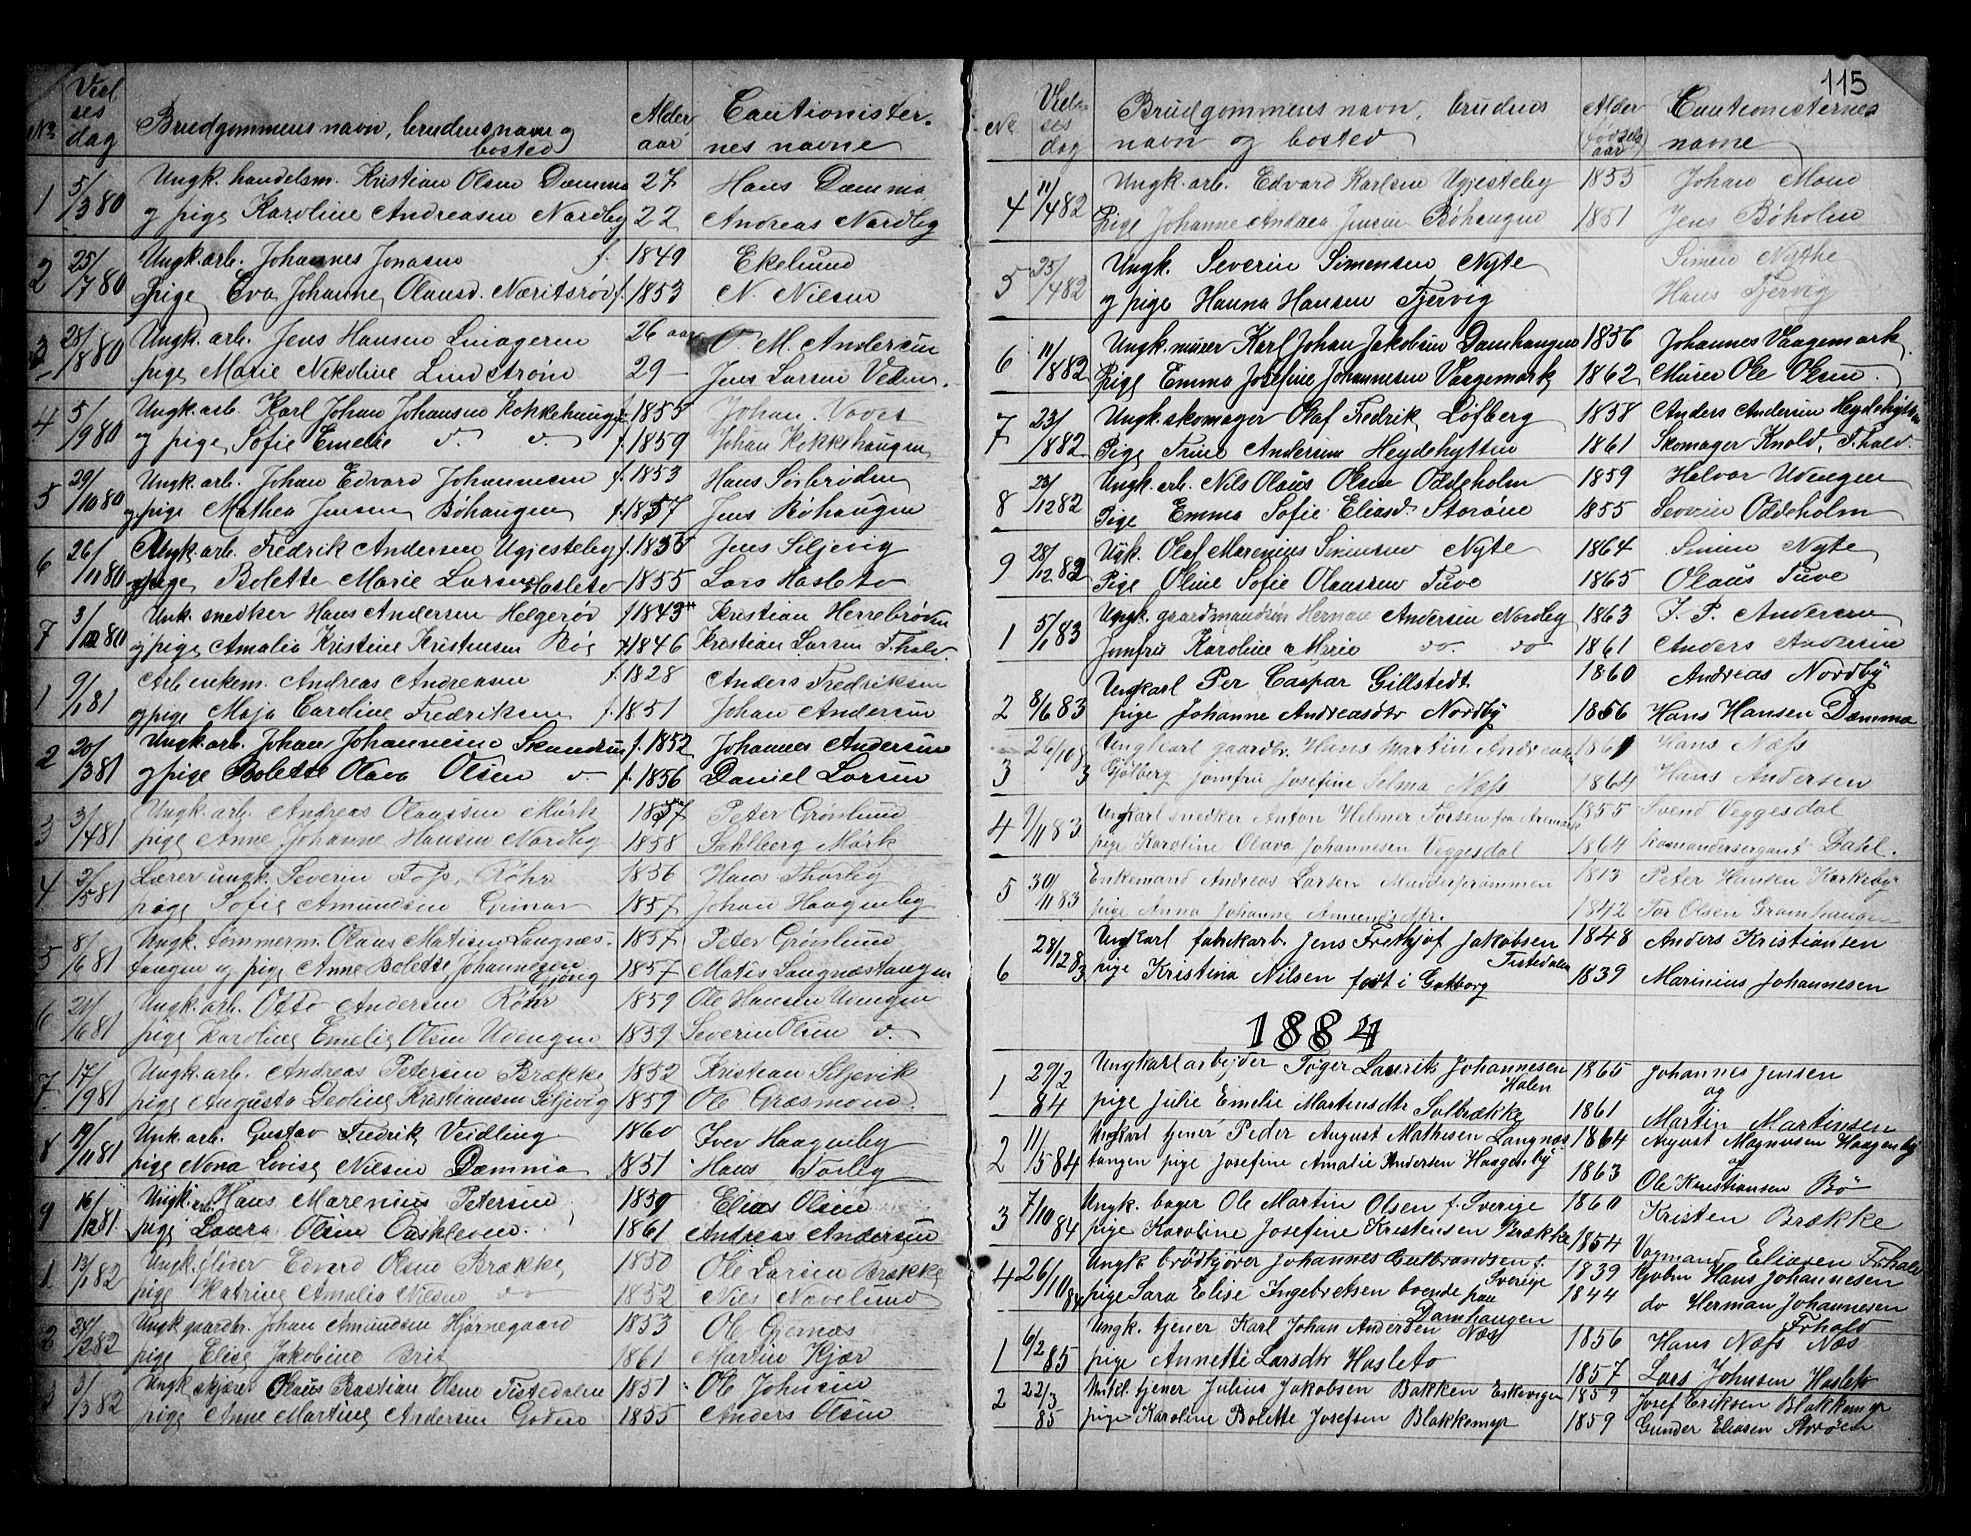 115
No Viel ses dag Brudgommens navn, brudens navn og bosted Alder aar Cautionister- nes navne
1 5/3 80 Ungk. handelsm. Kristian Olsen Damma 27 Hans Damma
og pige Karoline Andreasen Nordby 22 Andreas Nordby
2 25/7 80 Ungk. arb. Johannes Jonasen f. 1849 Ekelund
Pige Eva Johanne Olausd. Næritsrød f. 1853 N. Nilsen
3 28/8 80 Ungk. arb. Jens Hansen 26 aar O. M. Andersen
pige Marie Nikoline Lindstrøm 29 - Jens Larsen Veden
4 5/9 80 Ungk. arb. Karl Johan Johansen Kokkehaugen f. 1855 Johan
og pige Sofie Emelie v. v. f. 1859 Johan Kokkehaugen
5 29/10 80 Ungk. arb. Johan Edvard Johannesen f. 1853 Hans Sørbrøden
og pige Mathea Jensen Bøhaugen f. 1857 Jens Bøhaugen
6 26/11 80 Ungk. arb. Fredrik Andersen Ugjesteby f. 1855 Jens Siljevig
og pige Bolette Marie Larsen Hasleto 1855 Lars Hasleto
7 3/12 80 Unk. snedker Hans Andersen Helgerød f. 1843 Kristian Herrebrøden
og pige Amalia Kristine Kristensen Bø f. 1846 Kristian Larsen F.hald.
1 9/1 81 Arb. enkem. Andreas Andreasen f. 1828 Anders Fredriksen
og pige Maja Caroline Fredriksen f. 1851 Johan Andersen
2 20/3 81 Ungk. arb. Johan Johannesen f. 1852 Johannes Andersen
og pige Bolette Olava Olsen v. f. 1856 Daniel Larsen
3 3/4 81 Ungk. arb. Andreas Olaussen Mørk 1857 Peter Grønlund
pige Anne Johanne Hansen Nordby 1858 Sahlberg Mørk
4 3/5 81 Lærer ungk. Severin Foss, Röhr 1856 Hans Thorby
pige Sofie Amundsen Grimar 1857 Johan Haagenby
5 8/6 81 Ungk. tømmerm. Olaus Matisen Langnes- 1857 Peter Grønlund
tangen og pige Anne Bolette Johannesen 1857 Matis Langnæstangen
6 21/6 81 Ungk. arb. Otto Andersen Röhr 1859 Ole Hansen Uvengen
pige Karoline Emelie Olsen Uvengen 1859 Severin Olsen v.
7 17/9 81 Ungk. arb. Andreas Petersen Brække 1852 Kristian Siljevik
pige Augusta Leoline Kristiansen Siljevig 1859 Ole Græsmoen
8 19/11 81 Unk. arb. Gustav Fredrik Veidling 1860 Iver Haagenby
pige Nona Lovise Nilsen Damma 1851 Hans Torby
9 16/12 81 Ungk. arb. Hans Marenius Petersen 1859 Elias Olsen
pige Laura Olsen 1861 Andreas Andersen
1 13/1 82 Ungk. fløder Edvard Olsen Brække 1850 Ole Larsen Brække
pige Katrine Amalia Nilsen do 1852 Nils Navelund
2 24/2 82 Ungk. gaardbr. Johan Amundsen Hjørnegaard 1853 Ole Gjernæs
pige Elise Jakobine Brit 1861 Martin Kjær
3 3/3 82 Ungk. skjærer Olaus Bastian Olsen Tistedalen 1851 Ole Johnsen
pige Anne Martine Andersen 1855 Anders Olsen
Ne Viel- ses dag Brudgommens navn, brudens navn og bosted Alder (fødsels aar) Cautionisternes navne
4 11/4 82 Ungk. arb. Edvard Karlsen Ugjesteby 1855 Johan Moen
Pige Johanne Andrea Jensen Bøhaugen 1851 Jens Bøholm
5 25/4 82 Ungk. Severin Simensen Nyte Simen Nythe
og pige Hanna Hansen Tjervig Hans Tjervig
6 11/8 82 Ungk. murer Karl Johan Jakobsen Damhaugen 1856 Johannes Vaagemark
Pige Emma Josefine Johannesen Vaagemark 1862 Murer Ole Olsen
7 23/8 82 Ungk. skomager Olaf Fredrik Löfberg 1858 Anders Andersen Heydehytten
Pige Trine Andersen Heydehytten 1861 Skomager Knold, F.hald.
8 23/12 82 Ungk. arb. Nils Olaus Olsen Oddeholm 1859 Halvor Uvengen
Pige Emma Sofie Eliasd. Storöen 1855 Severin Oddeholm
9 28/12 82 Ugk. Olaf Marenius Simensen Nyte 1864 Simen Nyte
Pige Oline Sofie Olaussen Tuve 1865 Olaus Tuve
1 5/1 83 Ungk. gaardmandsøn Herman Andersen Nordby 1863 J. P. Andersen
Jomfru Karoline Marie do do 1861 Anders Andersen
2 8/6 83 Ungkarl Per Caspar Gillstedt 1860 Andreas Nordby
pige Johanne Andreasdtr Nordby 1856 Hans Hansen Damma
3 26/10 83 Ungkarl gaardbr. Hans Martin Andreasen 1861 Hans Næss
Gjølberg jomfru Josefine Selma Næss 1864 Hans Andersen
4 9/11 83 Ungkarl snedker Anton Helmer Torsen fra Aremark 1855 Svend Veggesdal
pige Karoline Olava Johannesen Veggesdal 1864 Komandersergant Dahl.
5 30/11 83 Enkemand Andreas Larsen 1813 Peter Hansen Korkeby
pige Anna Johanne Amundsdtr. 1842 Tor Olsen Gramhaugen
6 28/12 83 Ungkarl fabrikarb. Jens Frethjof Jakobsen Tistedalen 1848 Anders Kristiansen
pige Kristina Nilsen født i Gøtborg 1839 Marinius Johannesen
1884
1 29/2 84 Ungkarl arbejder Töger Laurits Johannesen Holen 1865 Johannes Jensen
og
pige Julie Emelie Martinsdtr Solbrække 1861 Martin Martinsen
2 11/5 84 Ungkarl tjener Peder August Mathisen Langnæs- 1864 August Magnusen Haagenby
og
tangen pige Josefine Amalie Andersen Haagenby 1863 Ole Kristiansen Bö
3 7/10 84 Ungk. bager Ole Martin Olsen f. Sverige 1860 Kristen Brække
pige Karoline Josefine Kristensen Brække 1854 Vogmand Eliasen Frhald
4 26/10 84 Ungk brödkjører Johannes Gulbrandsen f. Sverige 1839 Kjøbm Hans Johannesen
pige Sara Elise Ingebretsen boende paa Damhaugen 1844 do Herman Johannesen Frhald
1 6/2 85 Ungk. tjener Karl Johan Andersen Næss 1856 Hans Næss Næs
pige Annette Larsdtr Hasleto 1857 Lars Johnsen Hasleto
2 22/3 85 tjener Julius Jakobsen Bakken Enkevigen 1859 Josef Eriksen Blakkemyr
pige Karoline Bolette Josefsen Blakkemyr 1859 Gunder Eliasen Storöen